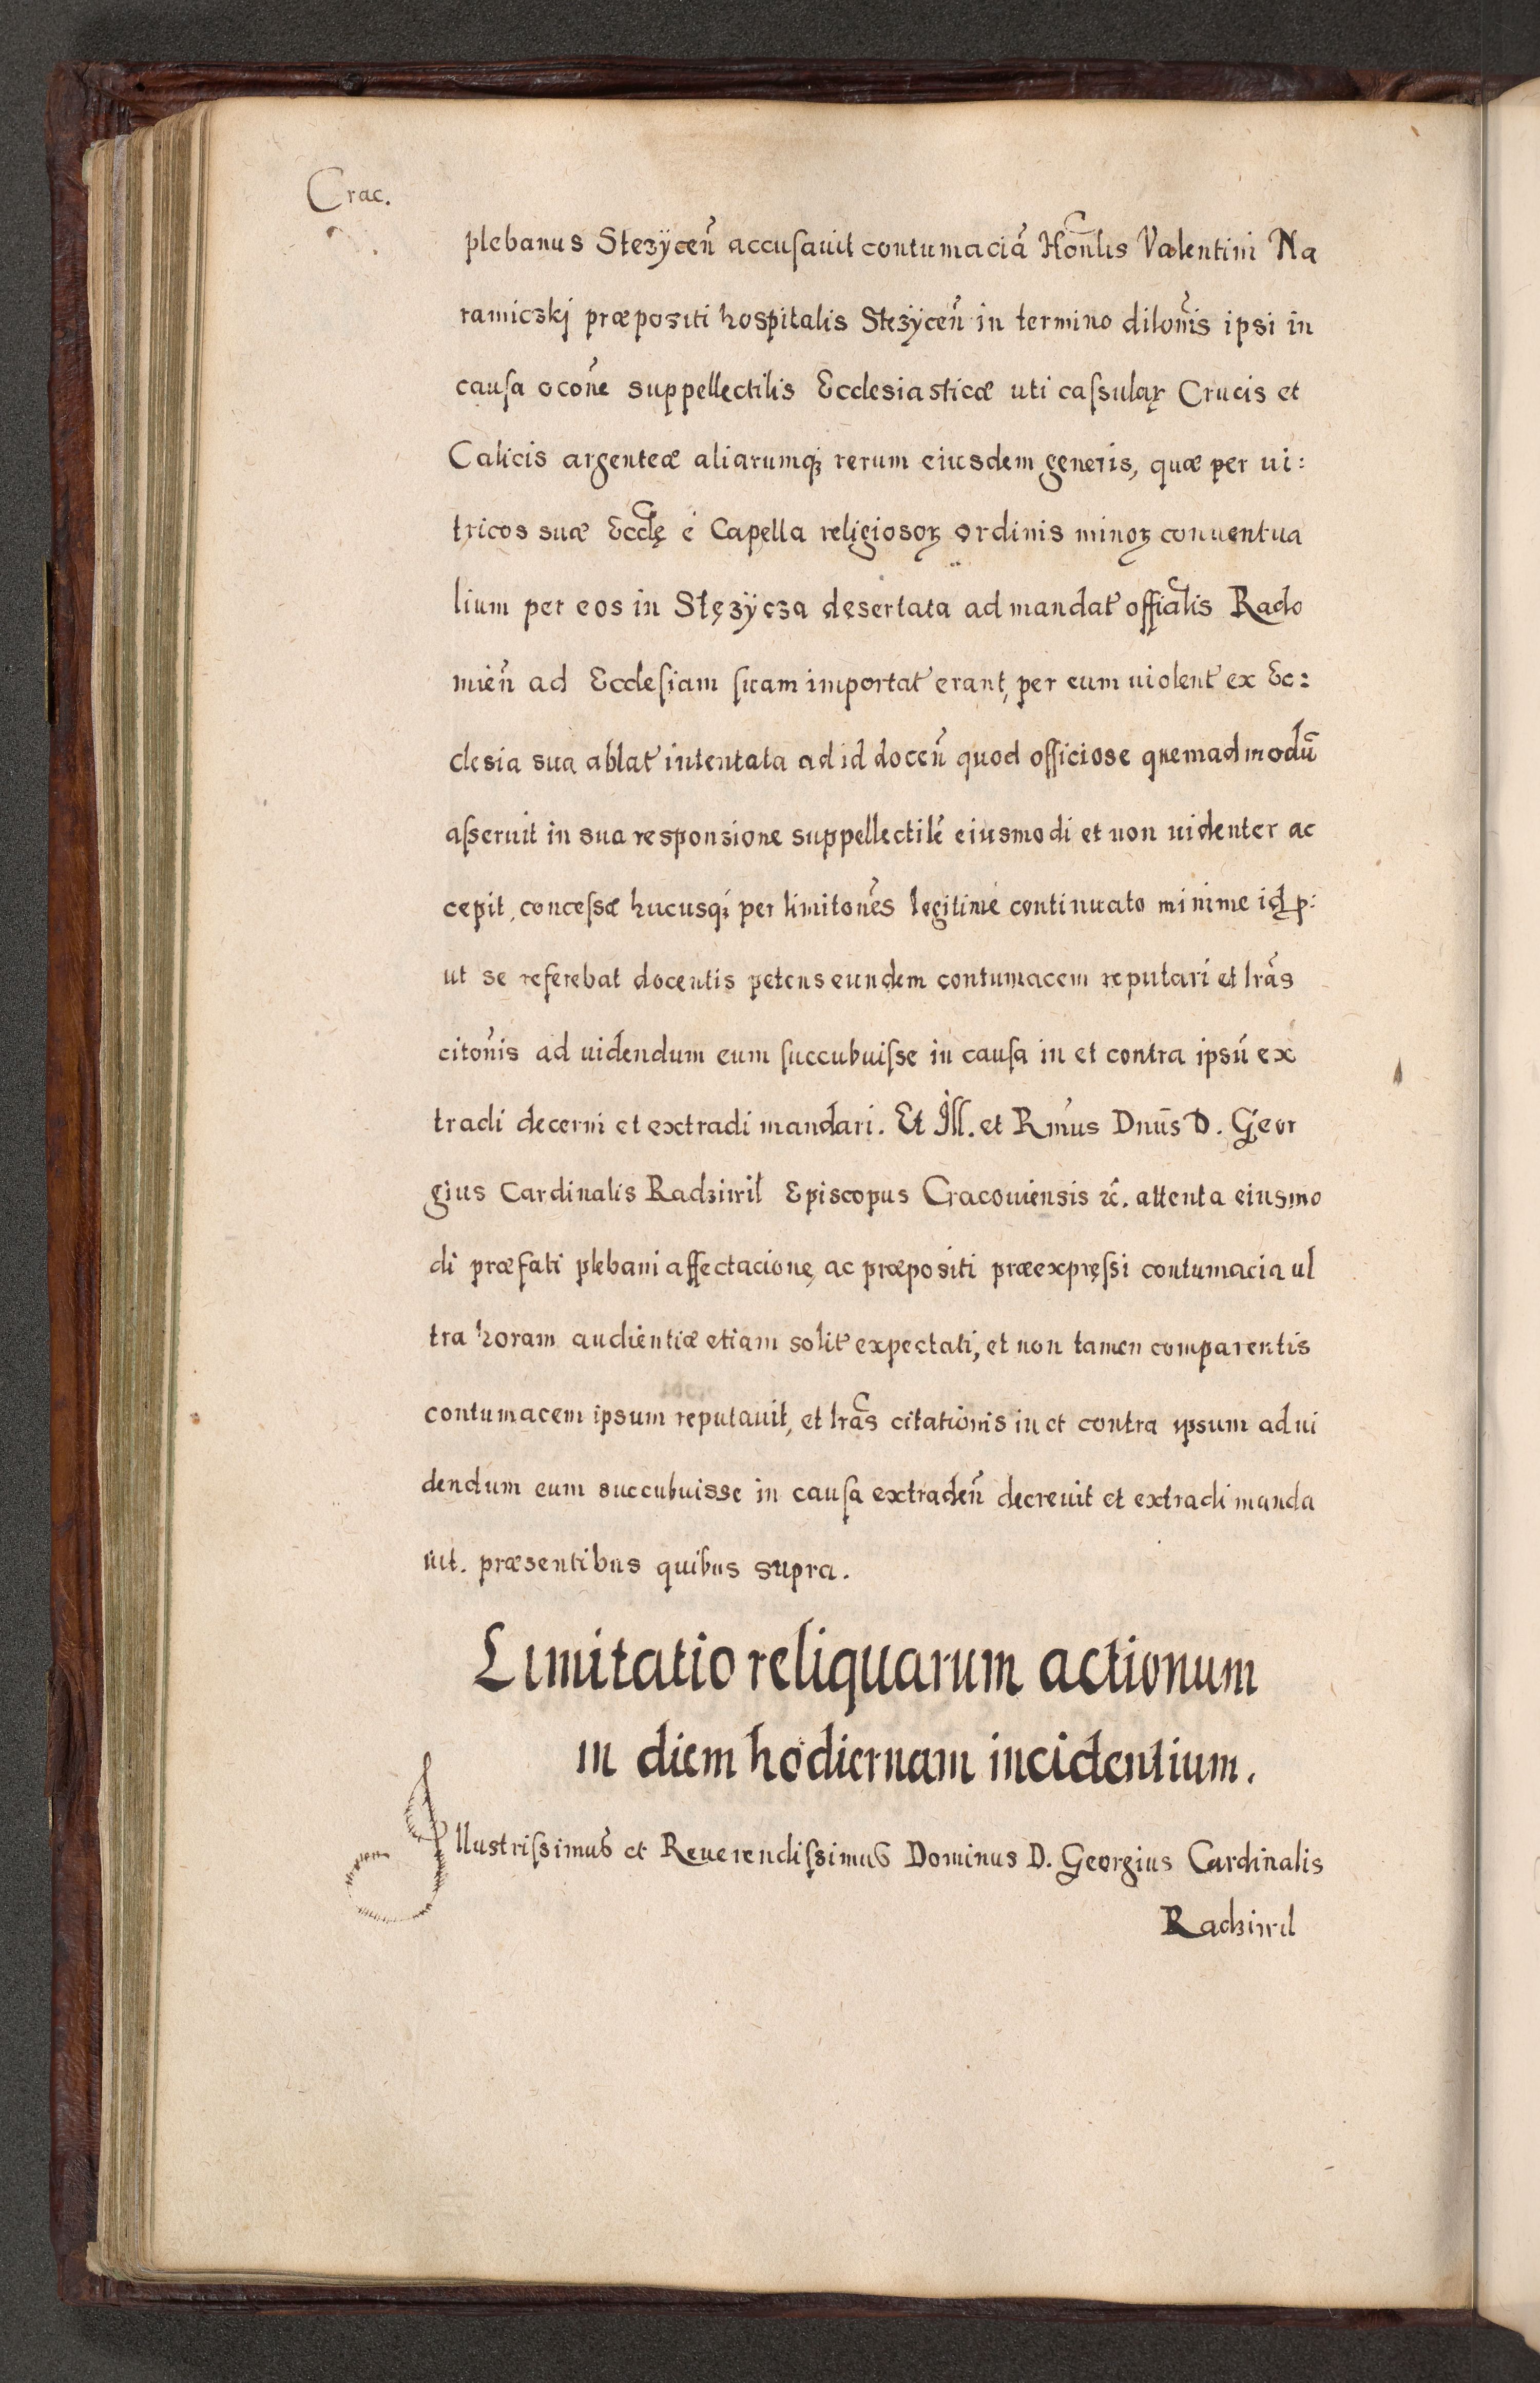 Crac.
plebanus Stezÿceñ accusauit contumaciā Honlis Valentini Na
ramiczkj præpositi hospitalis Stezÿceñ in termino dilonis ipsi in
causa ocone suppellectilis Ecclesiasticæ uti cassulaꝝ Crucis et
Calicis argenteæ aliarumqꝫ rerum eiusdem generis, quæ per ui:
tricos suæ Ecclę è Capella religiosoꝝ ordinis minoꝝ conuentua
lium per eos in Stęzÿcza desertata ad mandat offialis Rado
mieñ ad Ecclesiam suam importat erant, per eum uiolent ex Ec:
clesia sua ablat intentata ad id doceñ quod officiose quemadmodū
asseruit in sua responsione suppellectilē eiusmodi et non uidenter ac
cepit, concessæ hucusqꝫ per limitones legitime continuato minime id ꝓ:
ut se referebat docentis petens eundem contumacem reputari et lras
citonis ad uidendum eum succubuisse in causa in et contra ipsū ex
tradi decerni et extradi mandari. Et Ill. et Rmus Dnus D. Geor
gius Cardinalis Radziwil Episcopus Cracouiensis ꝛc̃. attenta eiusmo
di præfati plebani affectacione, ac præpositi præexpressi contumacia ul
tra horam audientiæ etiam solit expectati, et non tamen comparentis
contumacem ipsum reputauit, et lras citationis in et contra ipsum ad ui
dendum eum succubuisse in causa extradeñ decreuit et extradi manda
uit. præsentibus quibus supra.
Limitatio reliquarum actionum
in diem hodiernam incidentium.
Illustrissimus et Reuerendissimus Dominus D. Georgius Cardinalis
Radziwil